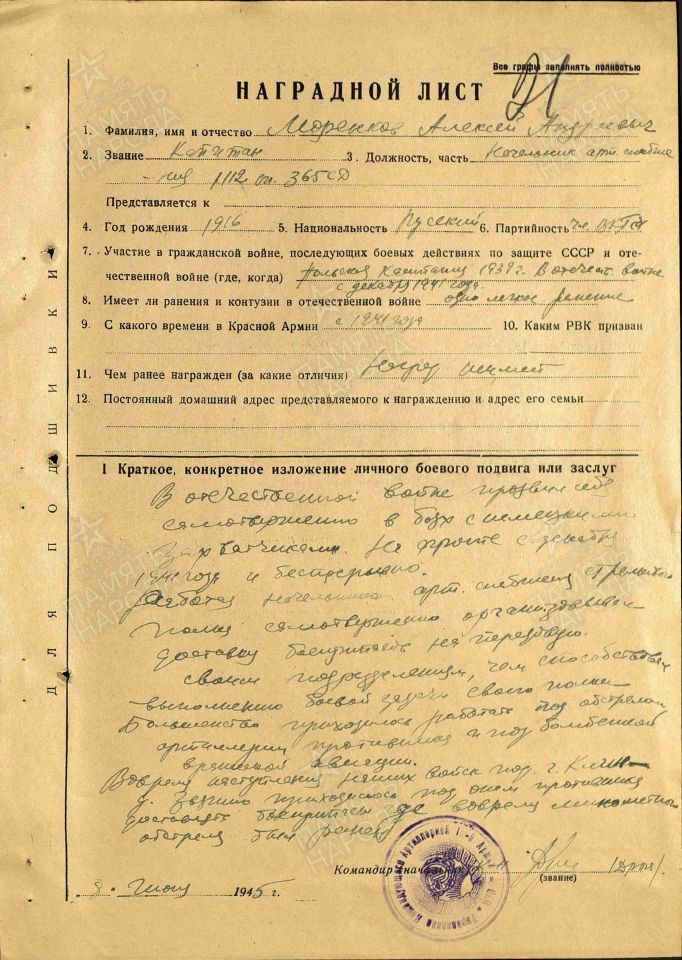 Все графы заполнять полностью
21
НАГРАДНОЙ ЛИСТ
1. Фамилия, имя и отчество Моренков Алексей Андреевич
2. Звание Капитан 3. Должность, часть Начальник арт. снабже
ния 1112 сп. 365СД
Представляется к
4. Год рождения 1916 5. Национальность Русский 6. Партийность чл ВКПб
7. Участие в гражданской войне, последующих боевых действиях по защите СССР и оте-
чественной войне (где, когда) Польская Кампания 1939г. В отечест. войне
с декабря 1941 года
8. Имеет ли ранения и контузии в отечественной войне одно легкое ранение
9. С какого времени в Красной Армии с 1941 года 10. Каким РВК призван
11. Чем ранее награжден (за какие отличия)
12. Постоянный домашний адрес представляемого к награждению и адрес его семьи
ДЛЯ ПОДШИВКИ
I Краткое, конкретное изложение личного боевого подвига или заслуг
В отечественной войне себя
самотверженно в боях с немецкими
захватчиками. На фронте с декабря
1941 года и беспрерывно.
Работая начальником арт. снабжения стрелкового
полка самотверженно организовывал
доставку боеприпасов на передовую
своим подразделениям, чем способствовал
выполнению боевой задачи своего полка
Большинство приходилось работать под обстрелом
артиллерии противника и под бомбежкой
вражеской авиации.
Вовремя наступления наших войск под г. Клин
д. приходилось под огнем противника
доставлять боеприпасы где вовремя минометного
обстрела был ранен
Командир начальник
(звание)
1945 г.
ПАМЯТЬ НАРОДА